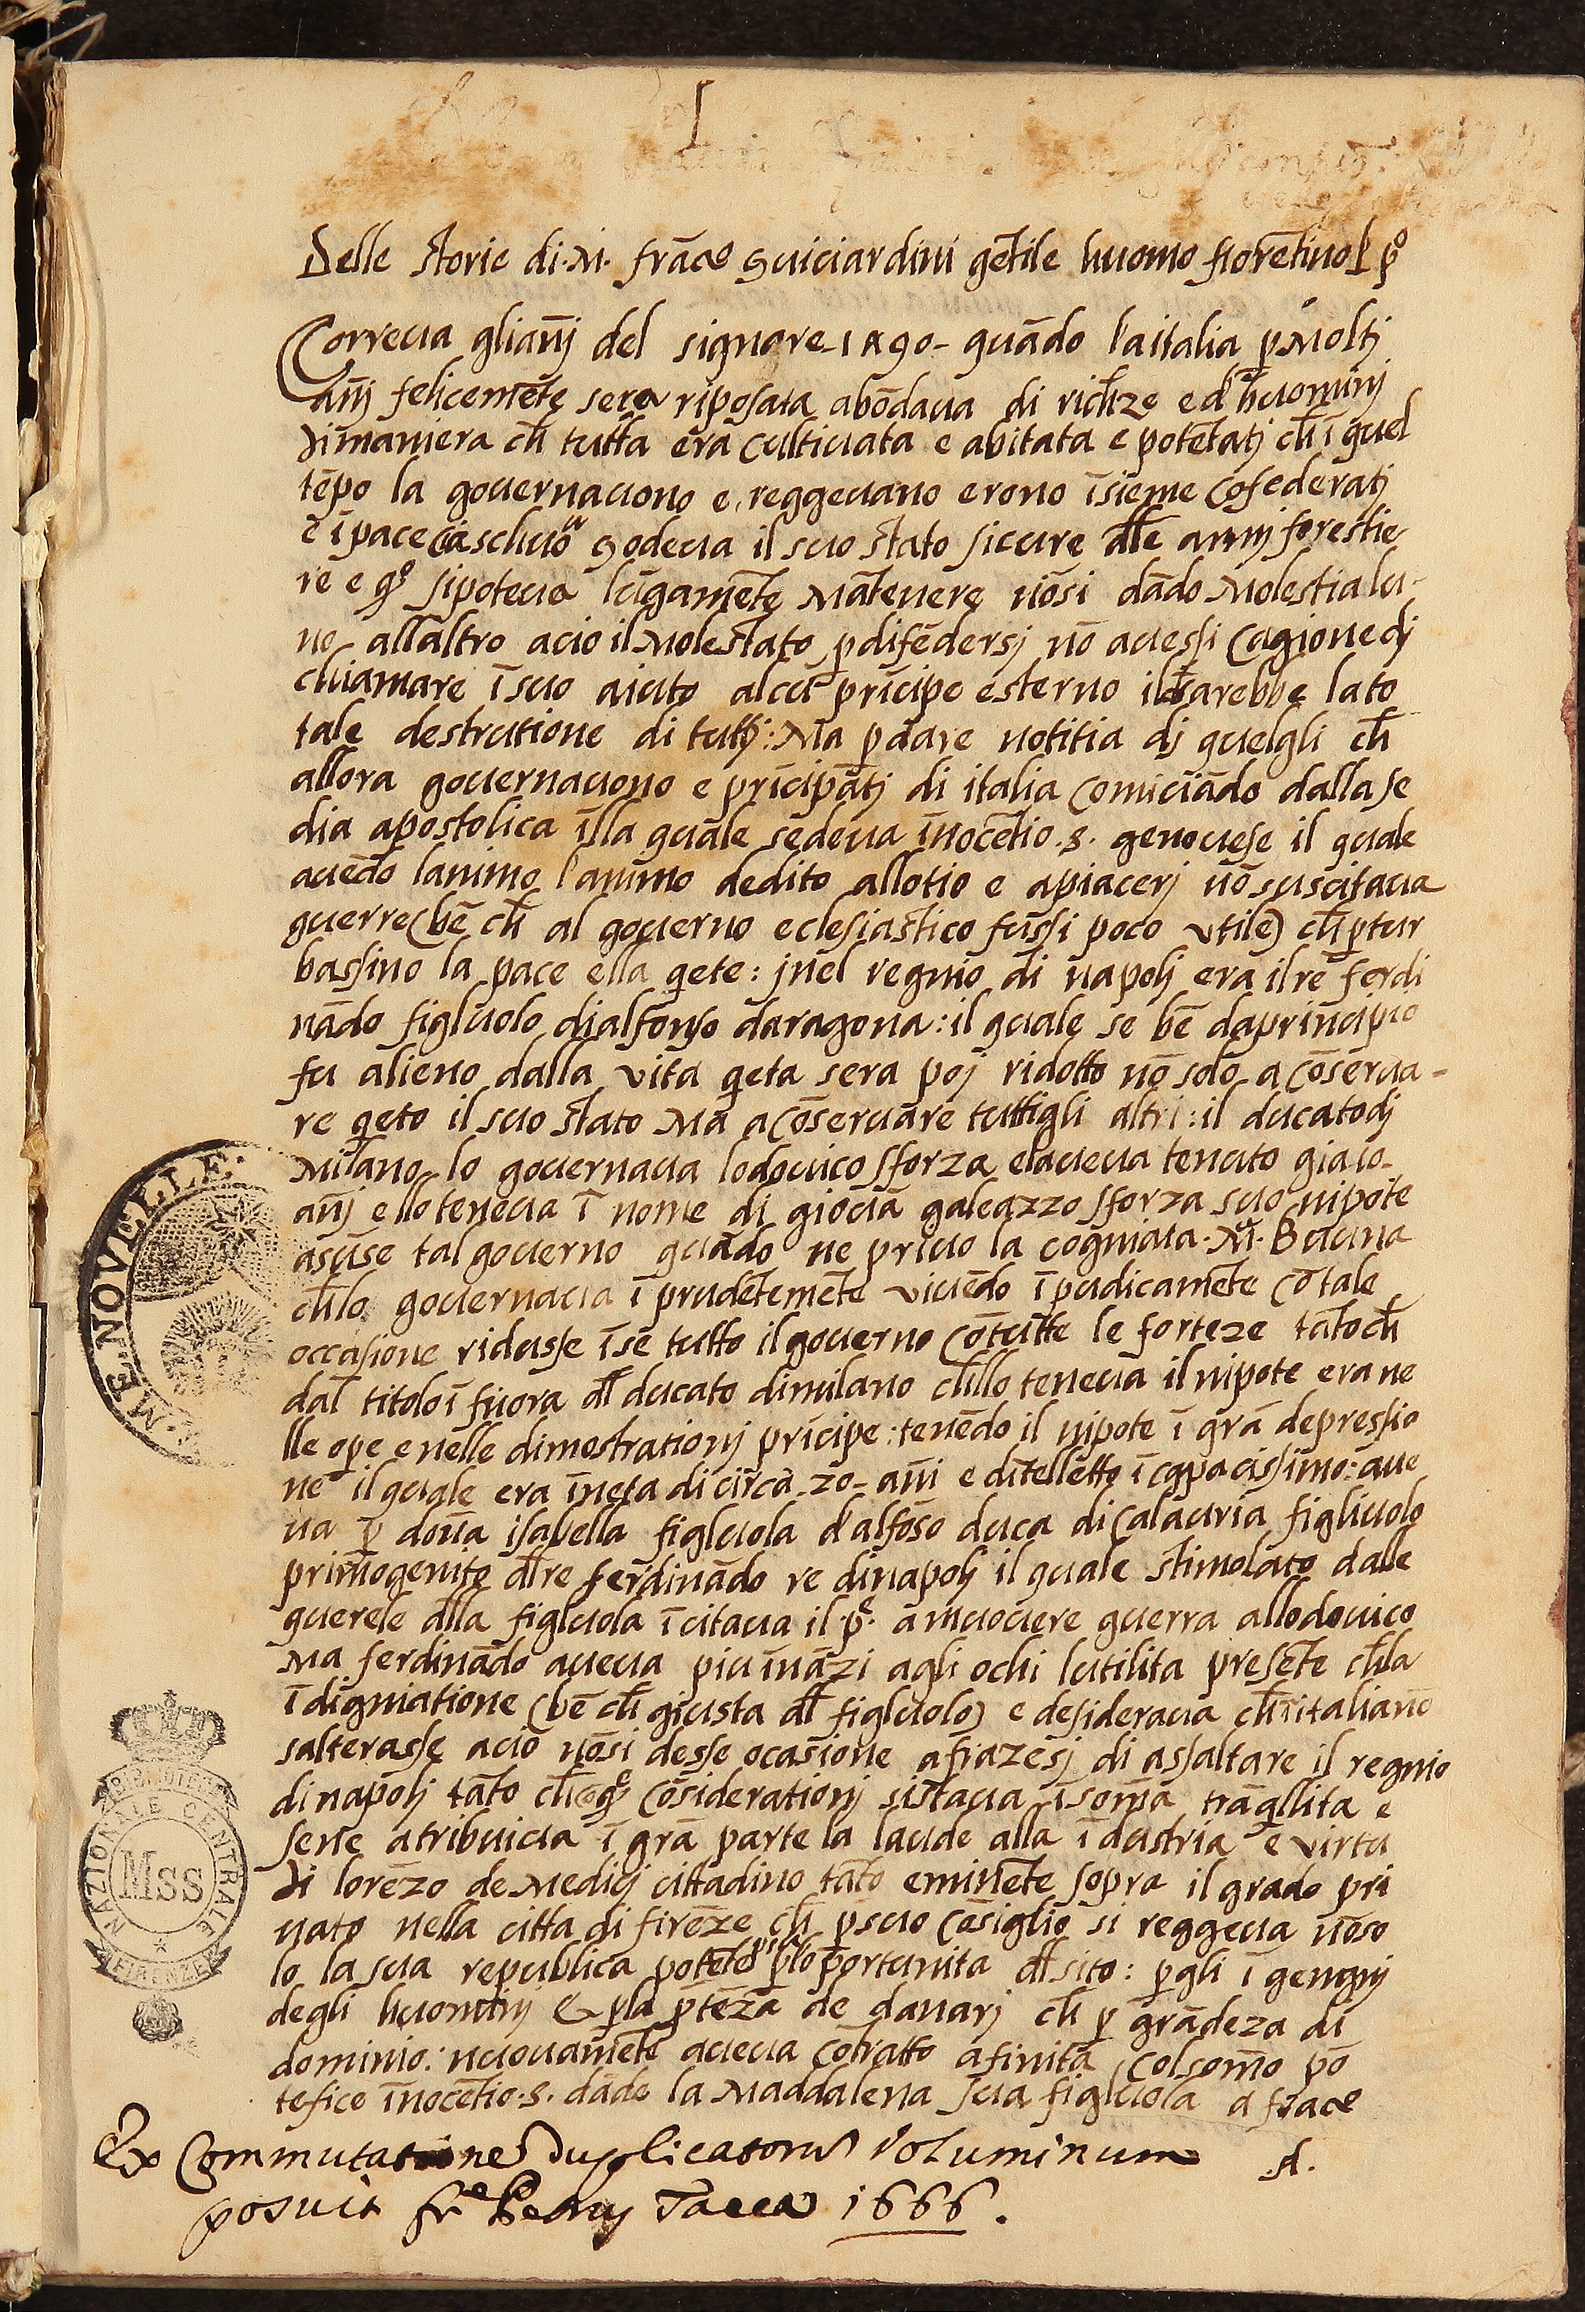 I
Delle storie di. M. frāco guiciardini gētile huomo fiorētino L pº
Correua gliañj del signore-1490- quādo laitalia p moltj
añj felicemēte sera riposata abōdaua di richze e d huominj
dimaniera ch tutta era cultiuata e abitata e potētatj ch ī quel
tēpo la gouernauono e reggeuano erono īsieme cōfederatj
e ī pace ciaschuō godeua il suo stato sicure dlle armj forestie
re e qº sipoteua lūgamēte mātenere nōsi dādo molestia lu-
no allaltro acio il molestato p difēdersj nō auessi cagione dj
chiamare ī suo aiuto alcū prīcipe esterno il ch sarebbe lato
tale destrutione di tuttj: Ma p dare notitia dj quelgli ch
allora gouernauono e prīcipātj di italia comīciādo dalla se
dia apostolica īlla quale sedeua īnocētio .8. genouese il quale
auēdo lanimo l'animo dedito allotio e apiacerj nō suscitaua
guerre (bē ch al gouerno eclesiastico fussi poco vtile) ch ptur
bassino la pace ella qete: jnel regnio di napolj era il re ferdi
nādo figluolo dialfonso daragona: il quale se bē daprincipio
fu alieno dalla vita qeta sera poj ridotto nō solo a cōserua-
re qeto il suo stato ma a cōseruare tuttigli altri: il ducatodj
Milano lo gouernaua lodouico sforza elaueua tenuto gia10-
añj e llo teneua ī nome di giouā galeazzo sforza suo nipote
asūse tal gouerno quādo ne priuo la cogniata .Mª. Buona
ch lo gouernaua ī prudētemēte viuēdo ī pudicamēte cō tale
occasione ridusse ī se tutto il gouerno cō tutte le forteze tāto ch
dal titolo ī fuora dl ducato dimilano ch llo teneua il nipote era ne
lle ope e nelle dimostrationj prīcipe: tenēdo il nipote ī grā depressio
ne il quale era īneta di circa-20-añi e dītelletto ī capacissimo: aue
ua p doña isabella figluola d'alfōso duca di Calauria figliuolo
primogenito dl re ferdinādo re dinapolj il quale stimolato dalle
querele dlla figluola ī citaua il .pe. a muouere guerra allodouico
Ma ferdinādo aueua piu īnāzi agli ochi lutilita presēte ch la
īdigniatione (bē ch giusta dl figluolo) e desideraua ch ī italia nō
salterasse acio nōsi desse ocasione afrāzesj di assaltare il regnio
dinapolj tāto ch qe cōsiderationj sistaua ī soma trāqllita e
sene atribuiua ī grā parte la laude alla ī dustria e virtu
di lorēzo de Medicj cittadino tāto eminēte sopra il grado pri
uato nella citta di firēze ch p suo cōsiglio si reggeua nōso
lo la sua republica potēte p lo portunita dl sito: p gli ī gegnj
degli huominj & p la ptēza de danarj ch p grādeza di
dominio: nuouamēte aueua cōtratto afinita colsomo pō
tefice īnocētio .8. dādo la Maddalena sua figluola a frāce
A.
Ex Commutatione Duplicatorum Voluminum
posuit fr. Petrus Tacca 1666.
ME NOVELLE.
BIBLIOTECA
NAZIONALE CENTRALE
Mss
FIRENZE